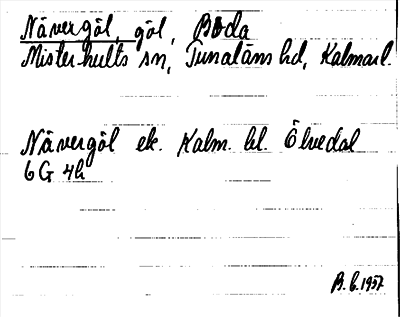 Nävergöl, göl, Boda
Misterhults sn, Tunaläns hd, Kalmar l.
Nävergöl ek. Kalm. bl. Ölvedal
6G 4h
B.E. 1957